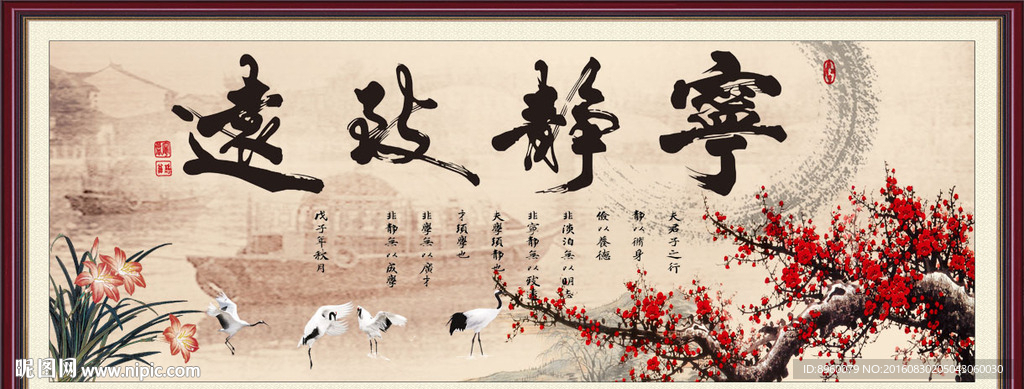 寧靜致遠
夫君子之行
靜以脩身
儉以養德
非淡泊無以明志
非寧靜無以致遠
夫學須靜也
才須學也
非學無以廣才
非靜無以成學
戊子年秋月
昵图网 www.nipic.com
ID:8960079 NO:20160830205048060030